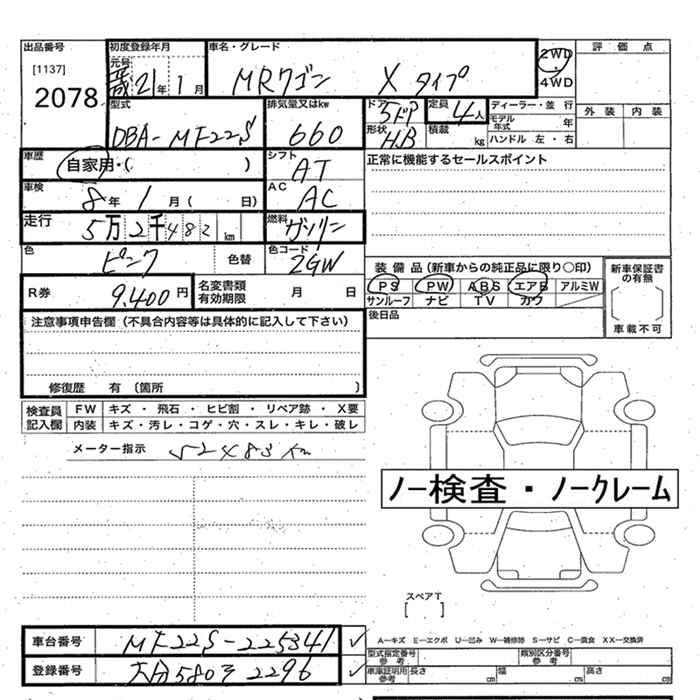 出品番号 初度登録年月 車名・グレード 評価点
[1137] 元号 平成 21年 1月 MRワゴン Xタイプ 2WD・4WD
2078
型式 排気量又はkw ドア 5ドア 定員 4人 ディーラー・並行 外装 内装
DBA-MF22S 660 形状 H.B 積載 kg モデル年式 年
ハンドル 左・右
車歴 自家用・( ) シフト AT 正常に機能するセールスポイント
車検 8年 1月( 日) AC AC
走行 5万2千482km 燃料 ガソリン
色 ピンク 色替 色コード ZGW
装備品(新車からの純正品に限り○印) 新車保証書の有無
R券 9.400円 名変書類有効期限 月 日 PS PW ABS エアB アルミW
サンルーフ ナビ TV カワ
注意事項申告欄(不具合内容等は具体的に記入して下さい) 後日品 車載不可
修復歴 有〔箇所 〕
検査員記入欄 FW キズ・飛石・ヒビ割・リペア跡・X要
内装 キズ・汚レ・コゲ・穴・スレ・キレ・破レ
メーター指示 52483km
ノー検査・ノークレーム
スペアT
[ ]
車台番号 MF22S-225341 ✓ A-キズ E-エクボ U-凹ミ W-補修跡 S-サビ C-腐食 XX-交換済
型式指定番号 参考 類別区分番号 参考
登録番号 大分580 2296 ✓ 車庫証明用 参考 長さ cm 幅 cm 高さ cm